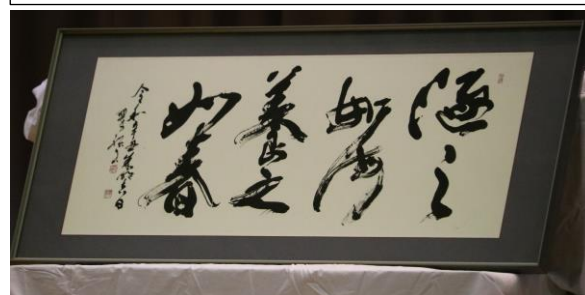 涵之
如海
養之
如春
令和